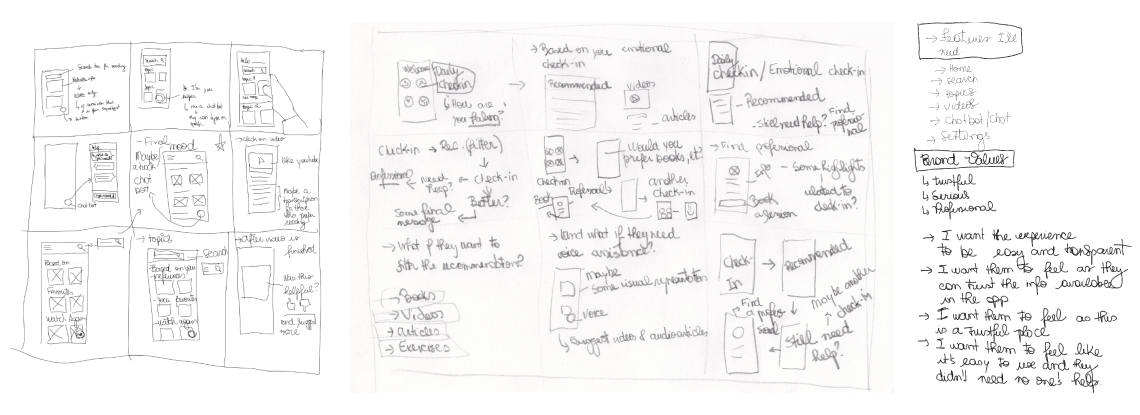 Search bar for reading
Chatbot
Hello
Search
topic 1
topic 2
→ Final mood
Maybe
a book
chat
bot
→ click on video
like youtube
Maybe a
transcription
in those
who prefer
reading
Based on
Favorites
Watch Again
→ topics
Search
Based on your
preferences
-your favorites
-watch again
→ after video is
finished
Was this
helpful?
Welcome
Daily
checkin
↳ How are
you feeling?
→ Based on you emotional
check-in
Recommended
videos
articles
Daily
checkin / Emotional check-in
- Recommended
- Still need help?
Find
profesional
Check-in → Rec. (filter)
Profesional ← need
help? ← check-in
Better?
Some final
message
→ What if they want to
filter the recommendations?
→ Books
→ Videos
→ articles
→ Exercises
Would you
prefer books, it?
Check in
Book
Profesionals
another
check-in
→ And what if they need
voice assistance?
maybe
some visual representation
voice
↳ Suggest videos & audioarticles
→ Find profesional
Info
- Some highlights
related to
check-in?
Book
a session
Check-
In
→ Recommended
Maybe another
check-in
Still need
help?
→ Find
a profesional
→ Features I'll
need
→ Home
→ Search
→ topics
→ videos
→ Chatbot/chat
→ Settings
Brand Values
↳ trustful
↳ Serious
↳ Profesional
→ I want the experience
to be easy and transparent
→ I want them to feel as they
can trust the info available
in the app
→ I want them to feel as this
is a trustful place
→ I want them to feel like
it's easy to use and they
didn't need no one's help.